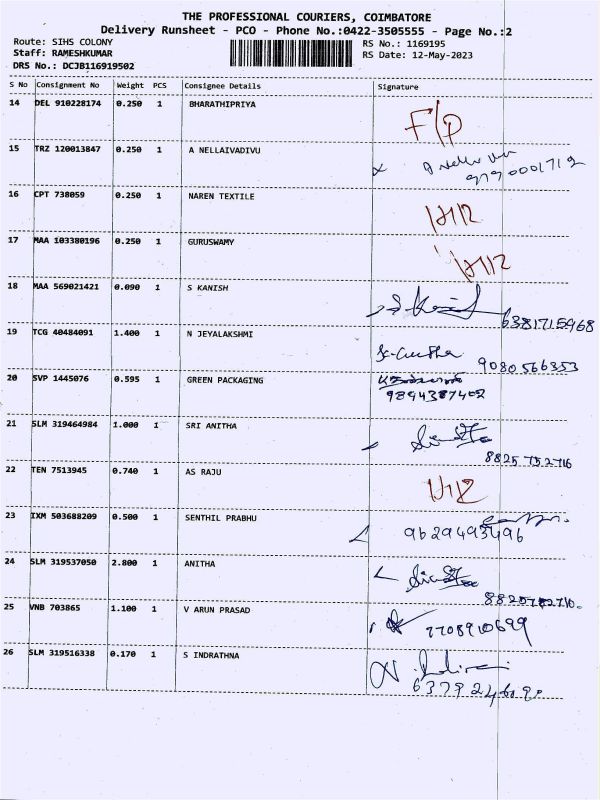 THE PROFESSIONAL COURIERS, COIMBATORE
Delivery Runsheet - PCO - Phone No.:0422-3505555 - Page No.:2
Route: SIHS COLONY RS No.: 1169195
Staff: RAMESHKUMAR RS Date: 12-May-2023
DRS No.: DCJB116919502
S No Consignment No Weight PCS Consignee Details Signature
14 DEL 910228174 0.250 1 BHARATHIPRIYA F/P
15 TRZ 120013847 0.250 1 A NELLAIVADIVU
9790001712
16 CPT 738059 0.250 1 NAREN TEXTILE
17 MAA 103380196 0.250 1 GURUSWAMY
18 MAA 569021421 0.090 1 S KANISH
6381715968
19 TCG 40484091 1.400 1 N JEYALAKSHMI
9080566353
20 SVP 1445076 0.595 1 GREEN PACKAGING
9894387402
21 SLM 319464984 1.000 1 SRI ANITHA
8825752716
22 TEN 7513945 0.740 1 AS RAJU
23 IXM 503688209 0.500 1 SENTHIL PRABHU
9629493496
24 SLM 319537050 2.800 1 ANITHA
25 VNB 703865 1.100 1 V ARUN PRASAD
7708910699
26 SLM 319516338 0.170 1 S INDRATHNA